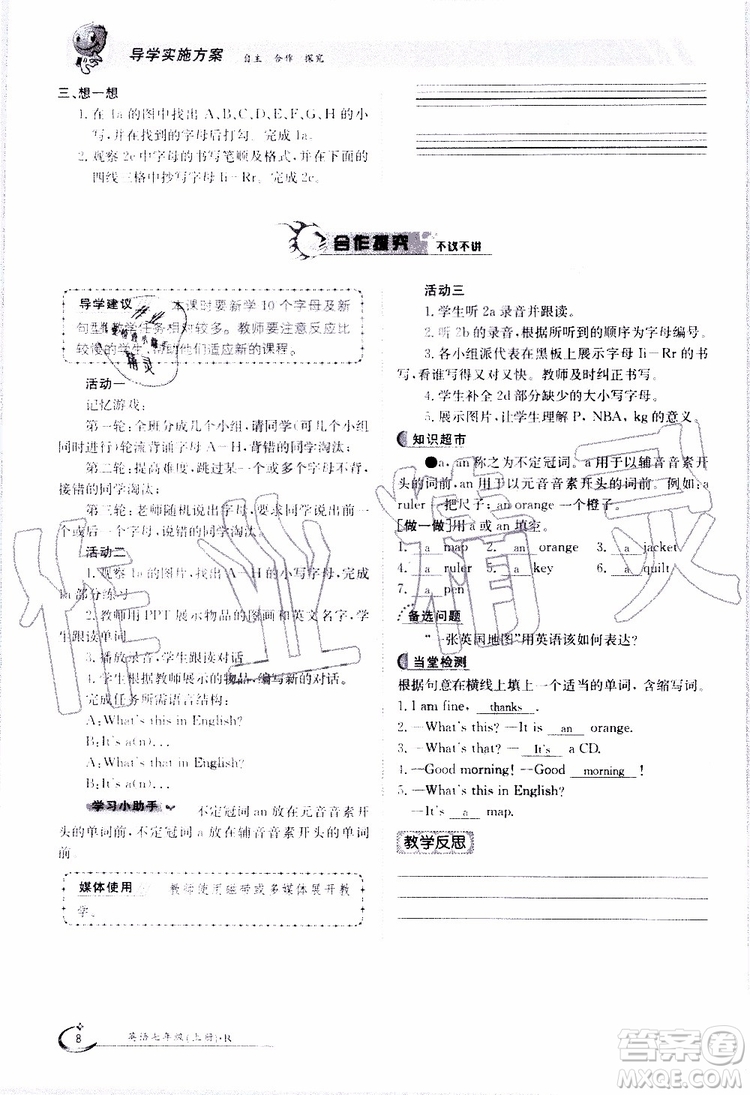 导学实施方案 自主 合作 探究
三、想一想
1. 在 1a 的图中找出 A、B、C、D、E、F、G、H 的小
写,并在找到的字母后打勾。完成 1a。
2. 观察 2c 中字母的书写笔顺及格式,并在下面的
四线三格中抄写字母 Ii－Rr。完成 2c。
合作探究 不议不讲
导学建议 本课时要新学 10 个字母及新
句型,教学任务相对较多。教师要注意反应比
较慢的学生,帮助他们适应新的课程。
活动一
记忆游戏:
第一轮:全班分成几个小组,请同学(可几个小组
同时进行)轮流背诵字母 A－H,背错的同学淘汰;
第二轮:提高难度,跳过某一个或多个字母不背,
接错的同学淘汰;
第三轮:老师随机说出字母,要求同学说出它的
前一个或后一个字母,说错的同学淘汰。
活动二
1. 观察 1a 的图片,找出 A－H 的小写字母,完成
1a 部分练习
2. 教师用 PPT 展示物品的图画和英文名字,学
生跟读单词
3. 播放录音,学生跟读对话
4. 学生根据教师展示的物品,编写新的对话。
完成任务所需语言结构:
A:What's this in English?
B:It's a(n)...
A:What's that in English?
B:It's a(n)...
学习小助手 不定冠词 an 放在元音音素开
头的单词前,不定冠词 a 放在辅音音素开头的单词
前。
媒体使用 教师使用磁带或多媒体展开教
学。
活动三
1. 学生听 2a 录音并跟读。
2. 听 2b 的录音,根据所听到的顺序为字母编号。
3. 各小组派代表在黑板上展示字母 Ii－Rr 的书
写,看谁写得又对又快。教师及时纠正书写。
4. 学生补全 2d 部分缺少的大小写字母。
5. 展示图片,让学生理解 P、NBA、kg 的意义。
知识超市
●a、an 称之为不定冠词。a 用于以辅音音素开
头的词前,an 用于以元音音素开头的词前。例如:a
ruler 一把尺子; an orange 一个橙子。
[做一做]用 a 或 an 填空。
1. a map 2. an orange 3. a jacket
4. a ruler 5. a key 6. a quilt
7. a pen
备选问题
“一张英国地图”用英语该如何表达?
当堂检测
根据句意在横线上填上一个适当的单词,含缩写词。
1. I am fine, thanks .
2. —What's this? —It is an orange.
3. —What's that? — It's a CD.
4. —Good morning! —Good morning !
5. —What's this in English?
—It's a map.
教学反思
8 英语七年级(上册)·R
作业精灵
答案圈
MXQE.COM